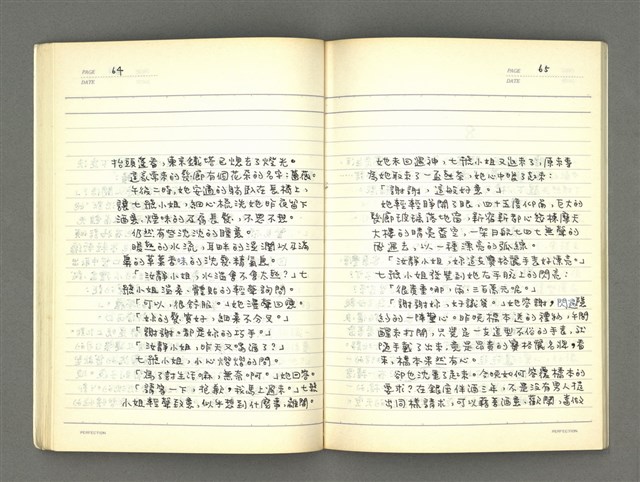 PAGE 64
DATE
抬頭望着,東京鐵塔已熄去了燈光。
這家常來的發廊有個花朵的名字:薔薇。
午後二時,她安適的躺臥在長椅上,
讓七號小姐,細心梳洗她昨夜留下
酒臭、煙味的及肩長髮,不思不想。
仍然有些沈沈的睡意。
暖熱的水流,耳畔的
「汝靜小姐,水溫會不會太熱?」七
號小姐溫柔、體貼的輕聲詢問。
「可以,很舒服。」她漫聲回應。
「妳的髮質好,細柔不分叉。」
「謝謝。都是妳的巧手。」
「汝靜小姐,昨天又喝酒了?」
七號小姐,小心熠熠的問。
「為了討生活嘛,無奈啊。」她回答。
「請等一下,抱歉。我馬上過來。」七號
小姐輕聲致意,似乎想到什麼事,離開。
PROTECTION
PAGE 65
DATE
她未回過神,七號小姐又返來了,原來書
為她取來了一盅熱茶,她心中暖了起來:
「謝謝,這般好意。」
她輕輕睜開了眼,四十五度仰角,巨大的
發廊玻璃落地窗,新宿新都心幾棟摩天
大樓的晴亮蒼空,一架白色七四七無聲的
西過去,以一種漂亮的弧線。
「汝靜小姐,妳這支寶格麗手錶好漂亮。」
七號小姐發覺到她左手腕上的閃亮:
「很貴重哪,備三百萬元呢。」
「謝謝妳,好識貨。」她答謝,閃過隱
約的一陣驚心。昨晚橋本送的禮物,半開
醒來打開,只覺是一支造型不俗的手錶,試
隨手戴了出來,竟是昂貴的寶格麗名牌。看
來,橋本果然有心。
卻也沈重了起來。今晚如何答覆橋本的
要求?在銀座伴酒三年,不是沒有男人提
出同樣請求,可以藉著酒意、歡鬧,當做
PROTECTION